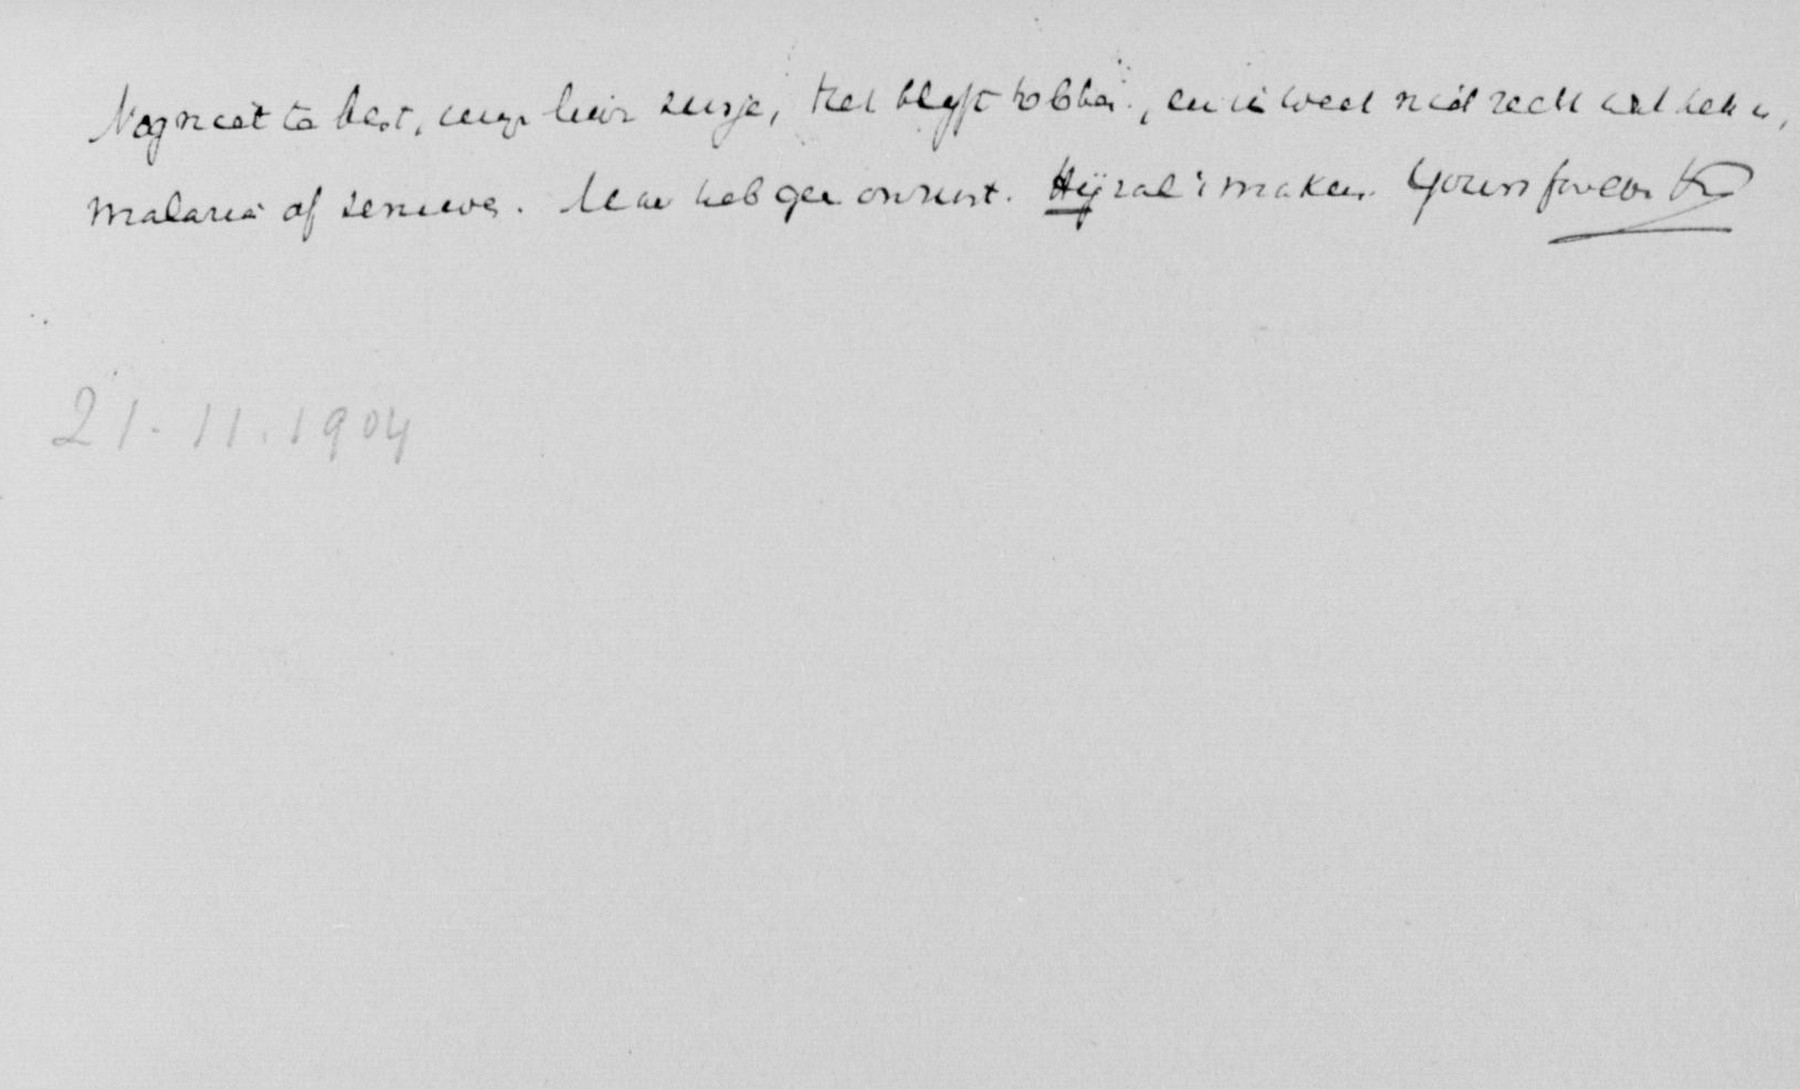 Nog niet te best, mijn lieve zusje, het blyft tobben, en ik weet niet recht wat het is,
malaria of zenuwen. Maar heb geen onrust. Hij zal 't maken. Yours for ever
21-11.1904